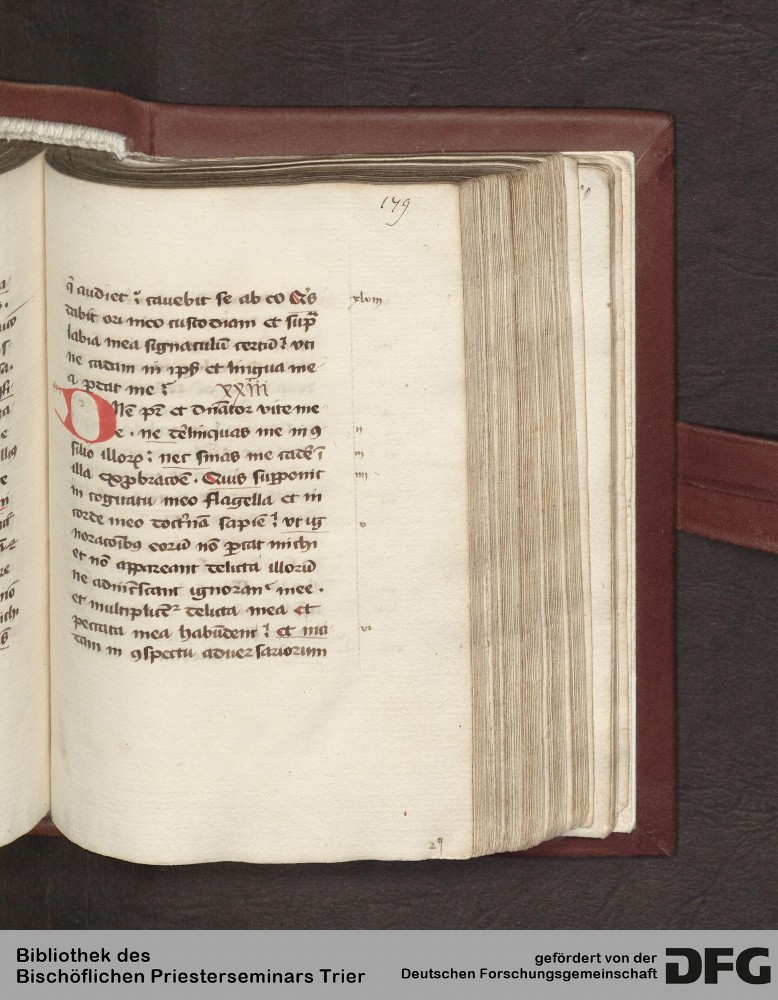 179
q̄ audiet ⁊ cauebit se ab eo Qͥs
dabit ori meo custodiam et suꝑ
labia mea signaculū certū ⁊ vti
ne cadam in ipſ et lingua me
a ꝑdat me ⁊ xxiii
xlviii
Dn̄e pr̄ et dn̄ator vite me
e · ne derelinquas me in ꝯ
ii
silio illorꝝ : nec sinas me cade ī
iii
illa exꝓbracōe · Quis supponit
iiii
in cogitatu meo flagella et in
corde meo doctͥnā sapiē ⁊ vt ig
v
noracōibꝰ eorū nō ꝑcat michi
et nō appareant delicta illorū
ne adincͥscant ignoranc̄ mee ·
et multiplicēt͛ delicta mea et
peccata mea habūdent ⁊ et inci
vi
dam in ꝯspectu aduersariorum
29
Bibliothek des
Bischöflichen Priesterseminars Trier
gefördert von der
Deutschen Forschungsgemeinschaft
DFG